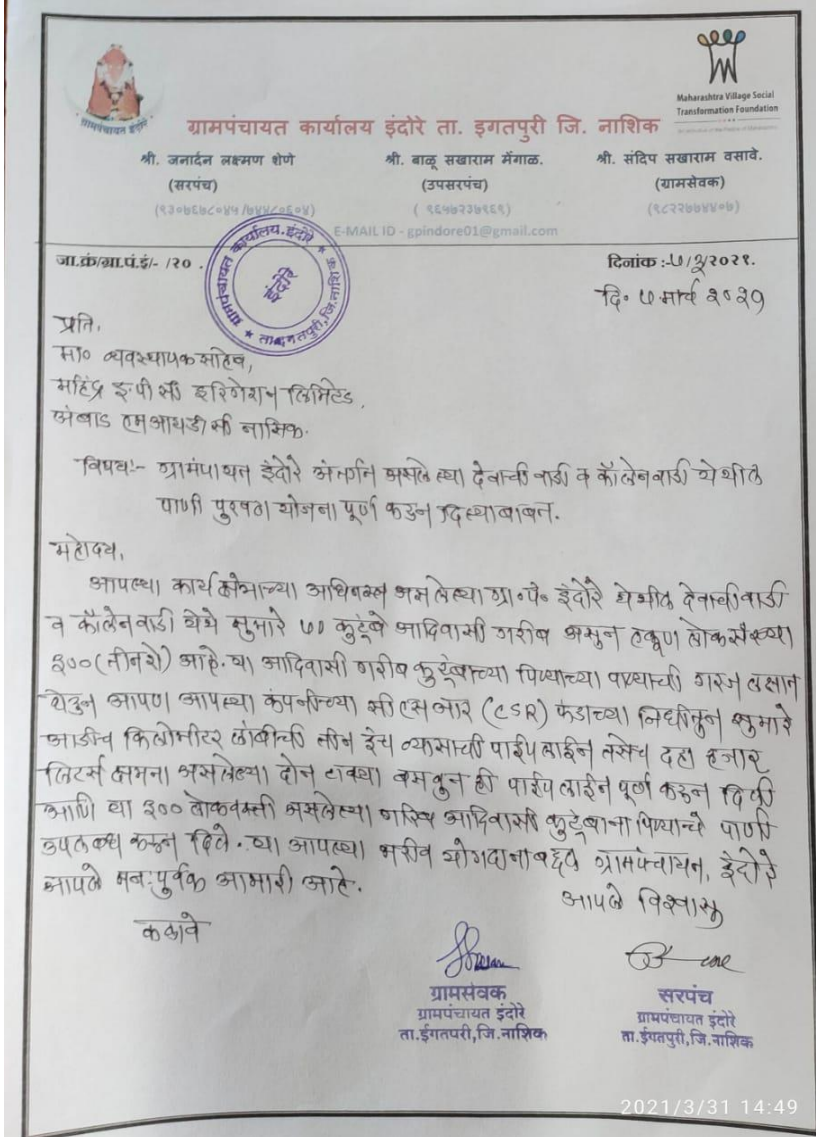 ग्रामपंचायत इंदोरे
Maharashtra Village Social
Transformation Foundation
ग्रामपंचायत कार्यालय इंदोरे ता. इगतपुरी जि. नाशिक
श्री. जनार्दन लक्ष्मण शेणे श्री. बाळू सखाराम मेंगाळ. श्री. संदिप सखाराम वसावे.
(सरपंच) (उपसरपंच) (ग्रामसेवक)
(९३०७६७८०४५/७४४८०६०४) (९६५७२३७९६९) (९८२२७७४४०७)
E-MAIL ID - gpindore01@gmail.com
ग्रामपंचायत कार्यालय.इंदोरे
इंदोरे
ता.इगतपुरी,जि.नाशिक
जा.क्रं/ग्रा.पं.इं/- /२० दिनांक :-७/३/२०२१.
दि. ७ मार्च २०२१
प्रति,
मा० व्यवस्थापक साहेब,
महिंद्र इ.पी.सी इरिगेशन लिमिटेड,
अंबाड एमआयडीसी नासिक.
विषय:- ग्रामंपायत इंदोरे अंतर्गत असलेल्या देवाची वाडी व कॉलेनवाडी येथील
पाणी पुरवठा योजना पूर्ण करुन दिल्याबाबत.
महोदय,
आपल्या कार्यक्षेत्राच्या अधिनस्त असलेल्या ग्रा.पं. इंदोरे येथील देवाचीवाडी
व कॉलेनवाडी येथे सुमारे ७० कुटूंबे आदिवासी गरीब असुन एकूण लोकसंख्या
३००(तीनशे) आहे. या आदिवासी गरीब कुटूंबाच्या पिण्याच्या पाण्याची गरज लक्षात
घेउन आपण आपल्या कंपनीच्या सीएसआर (CSR) फंडाच्या निधीतुन सुमारे
आडीच किलोमीटर लांबीची तीन इंच व्यासाची पाईपलाईन तसेच दहा हजार
लिटर्स क्षमता असलेल्या दोन टाक्या बसवुन ही पाईपलाईन पूर्ण करुन दिली
आणि या ३०० लोकवस्ती असलेल्या गरिब आदिवासी कुटूंबाना पिण्याचे पाणी
उपलब्ध करुन दिले. या आपल्या भरीव योगदानाबद्दल ग्रामपंचायत, इंदोरे
आपले मन:पुर्वक आभारी आहे.
आपले विश्वासू
कळावे
ग्रामसेवक सरपंच
ग्रामपंचायत इंदोरे ग्रामपंचायत इंदोरे
ता.ईगतपरी,जि.नाशिक ता.ईगतपुरी,जि.नाशिक
2021/3/31 14:49